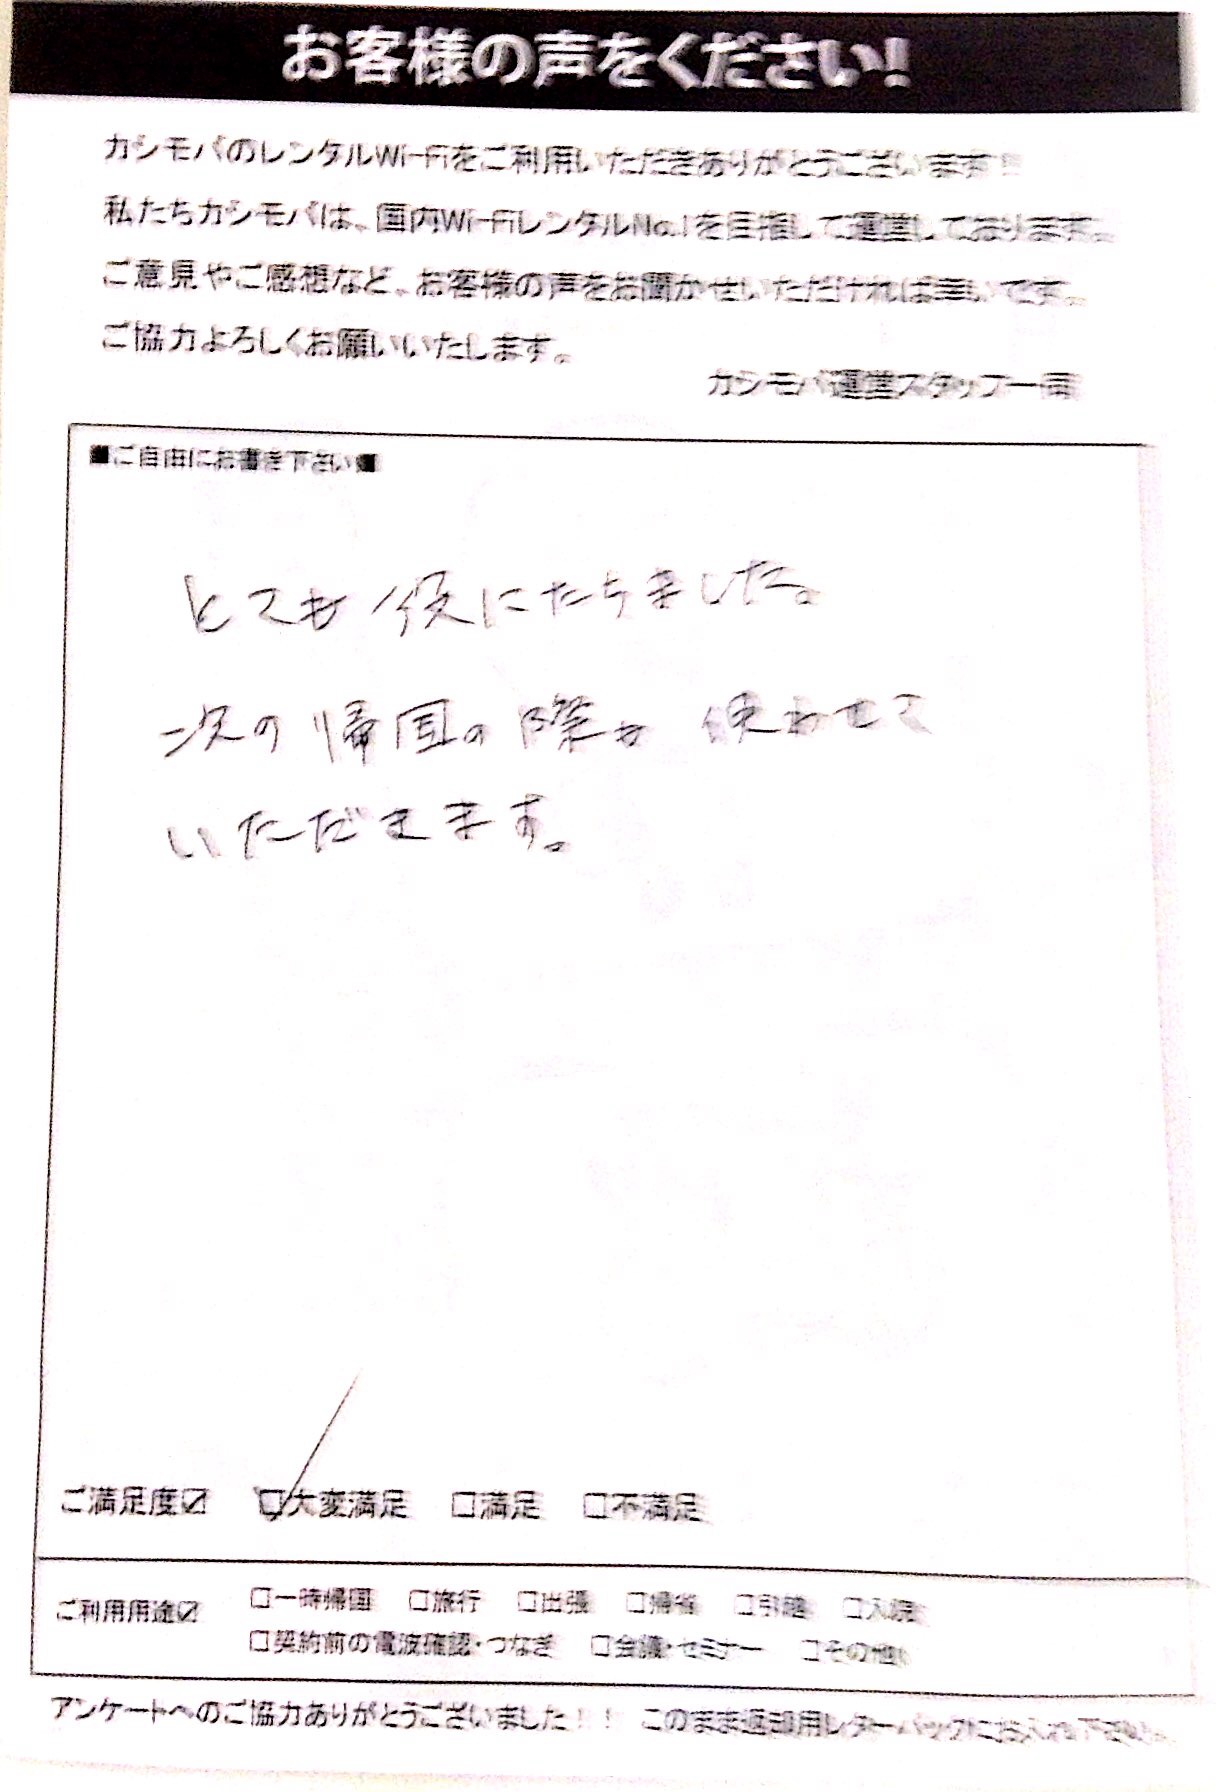 お客様の声をください!
カシモバのレンタルWi-Fiをご利用いただきありがとうございます!!
私たちカシモバは、国内Wi-FiレンタルNo.1を目指して運営しております。
ご意見やご感想など、お客様の声をお聞かせいただければ幸いです。
ご協力よろしくお願いいたします。
カシモバ運営スタッフ一同
■ご自由にお書き下さい■
とても役にたちました。
次の帰国の際も使わせて
いただきます。
ご満足度☑ ☑大変満足 □満足 □不満足
ご利用用途☑ □一時帰国 □旅行 □出張 □帰省 □引越 □入院
□契約前の電波確認・つなぎ □会議・セミナー □その他
アンケートへのご協力ありがとうございました!! このまま返却用レターパックにお入れ下さい。